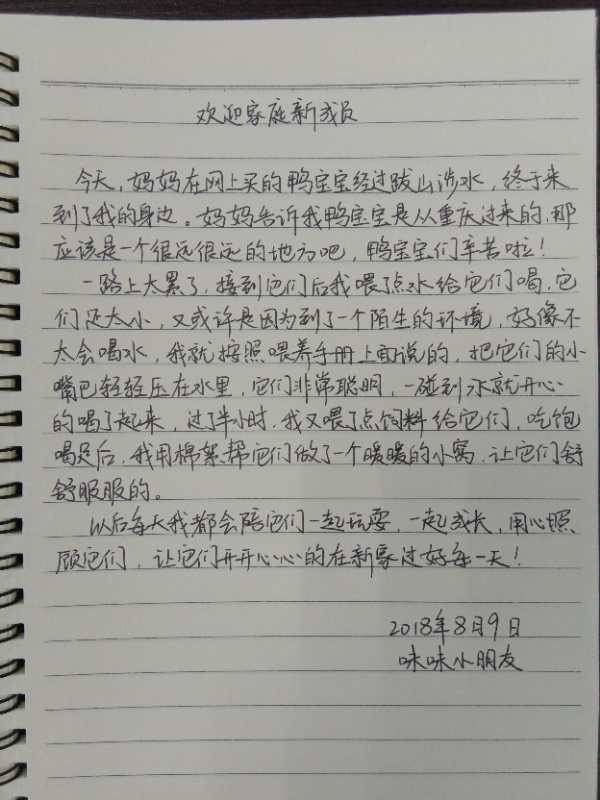 欢迎家庭新成员
今天,妈妈在网上买的鸭宝宝经过跋山涉水,终于来
到了我的身边。妈妈告诉我鸭宝宝是从重庆过来的,那
应该是一个很远很远的地方吧,鸭宝宝们辛苦啦!
一路上太累了,接到它们后我喂了点水给它们喝,它
们还太小,又或许是因为到了一个陌生的环境,好像不
太会喝水,我就按照喂养手册上面说的,把它们的小
嘴巴轻轻压在水里,它们非常聪明,一碰到水就开心
的喝了起来,过了半小时,我又喂了点饲料给它们,吃饱
喝足后,我用棉絮帮它们做了一个暖暖的小窝,让它们舒
舒服服的。
以后每天我都会陪它们一起玩耍,一起成长,用心照
顾它们,让它们开开心心的在新家过好每一天!
2018年8月9日
味味小朋友